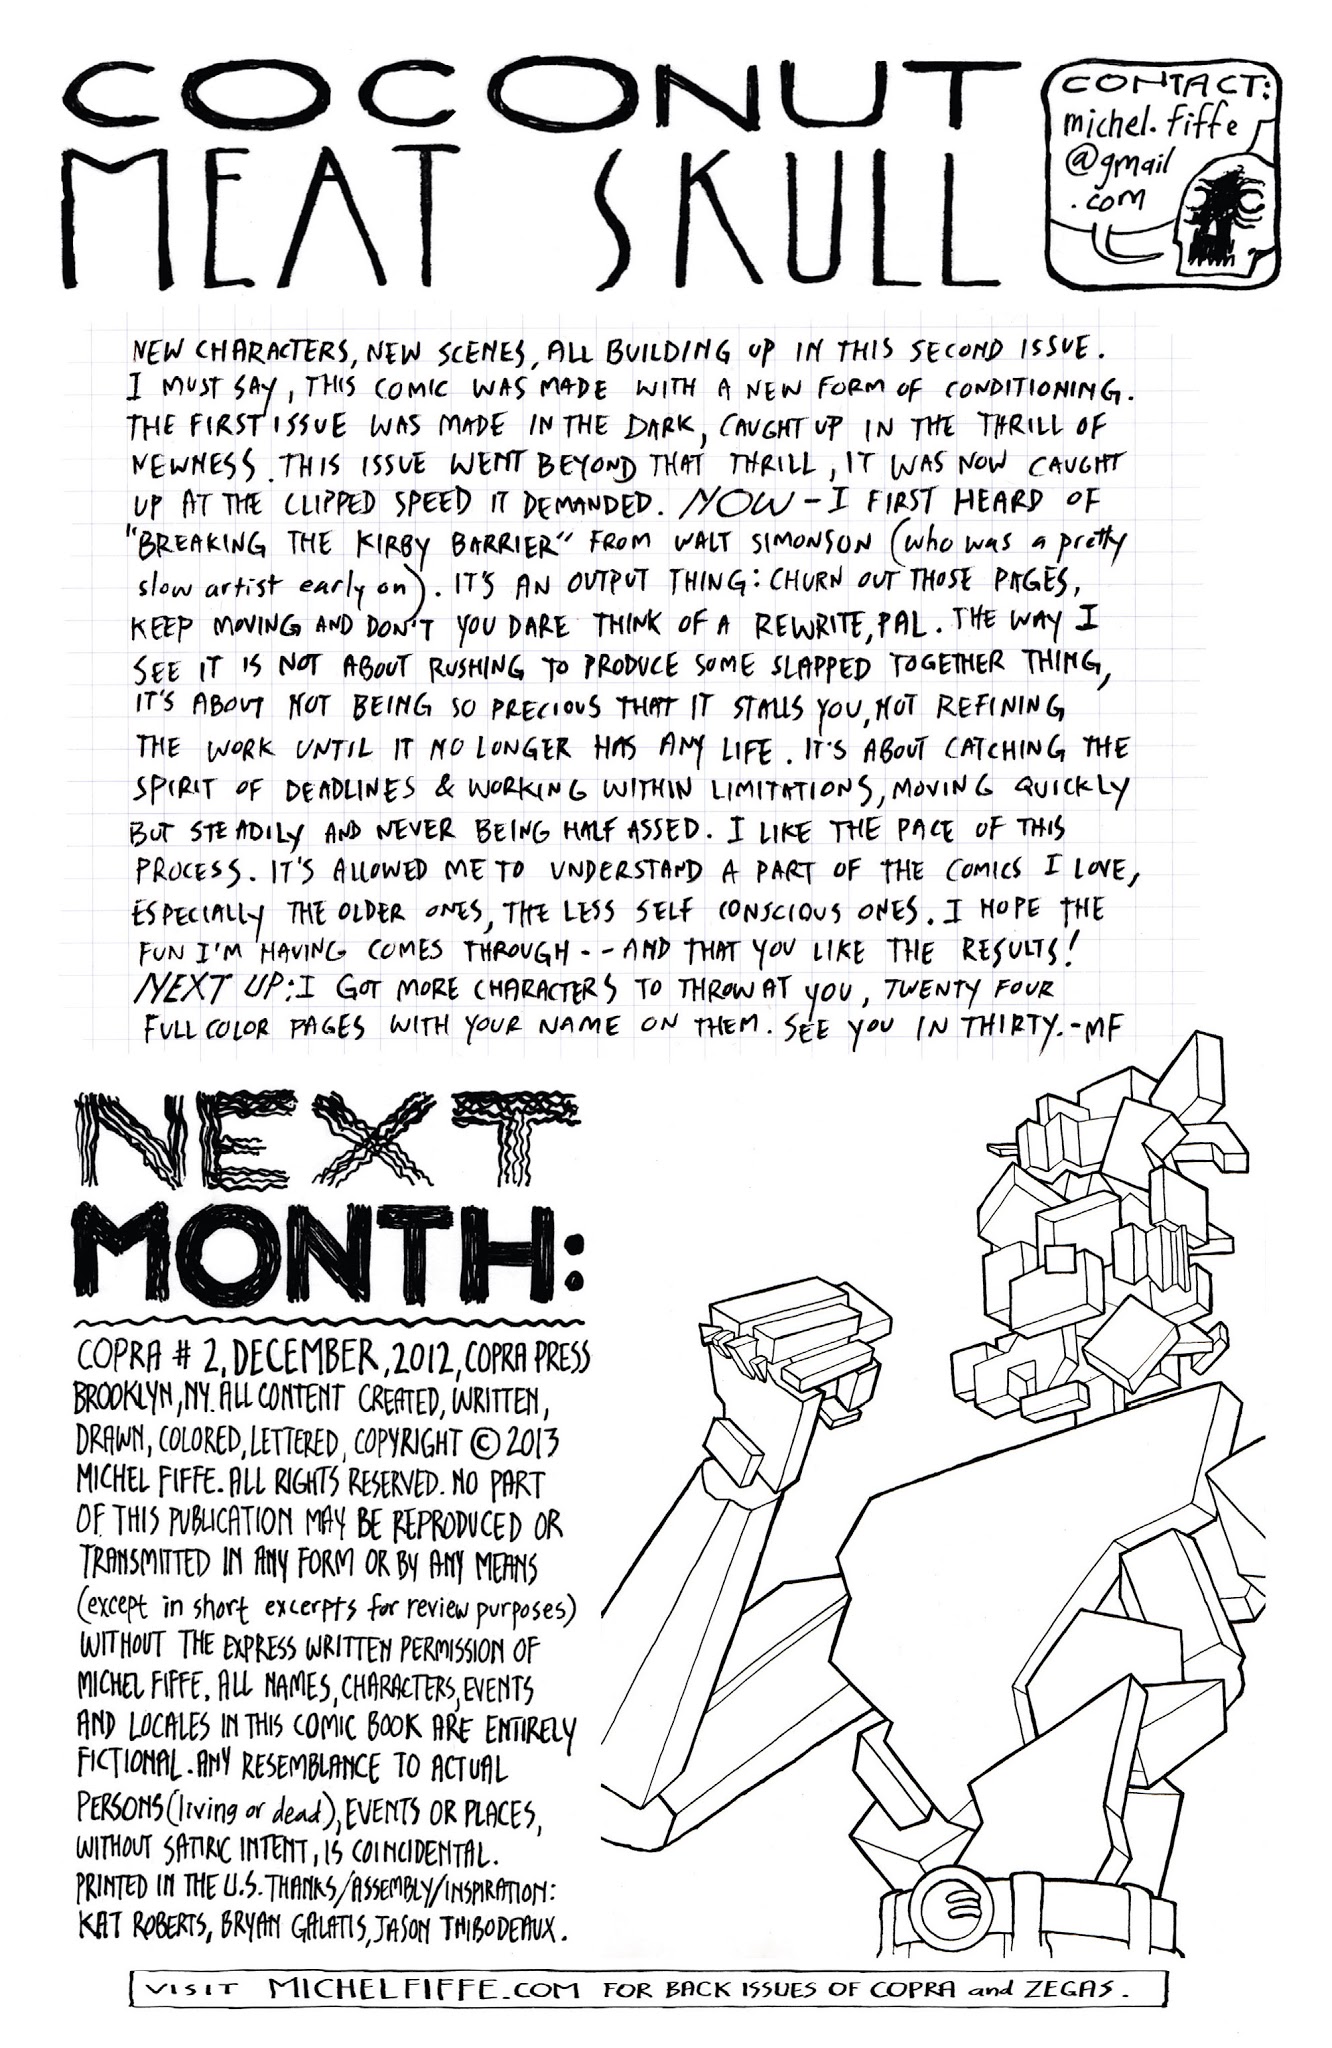 COCONUT
MEAT SKULL
CONTACT:
michel.fiffe
@gmail
.com
NEW CHARACTERS, NEW SCENES, ALL BUILDING UP IN THIS SECOND ISSUE.
I MUST SAY, THIS COMIC WAS MADE WITH A NEW FORM OF CONDITIONING.
THE FIRST ISSUE WAS MADE IN THE DARK, CAUGHT UP IN THE THRILL OF
NEWNESS. THIS ISSUE WENT BEYOND THAT THRILL, IT WAS NOW CAUGHT
UP AT THE CLIPPED SPEED IT DEMANDED. NOW - I FIRST HEARD OF
"BREAKING THE KIRBY BARRIER" FROM WALT SIMONSON (who was a pretty
slow artist early on). IT'S AN OUTPUT THING: CHURN OUT THOSE PAGES,
KEEP MOVING AND DON'T YOU DARE THINK OF A REWRITE, PAL. THE WAY I
SEE IT IS NOT ABOUT RUSHING TO PRODUCE SOME SLAPPED TOGETHER THING,
IT'S ABOUT NOT BEING SO PRECIOUS THAT IT STALLS YOU, NOT REFINING
THE WORK UNTIL IT NO LONGER HAS ANY LIFE. IT'S ABOUT CATCHING THE
SPIRIT OF DEADLINES & WORKING WITHIN LIMITATIONS, MOVING QUICKLY
BUT STEADILY AND NEVER BEING HALF ASSED. I LIKE THE PACE OF THIS
PROCESS. IT'S ALLOWED ME TO UNDERSTAND A PART OF THE COMICS I LOVE,
ESPECIALLY THE OLDER ONES, THE LESS SELF CONSCIOUS ONES. I HOPE THE
FUN I'M HAVING COMES THROUGH -- AND THAT YOU LIKE THE RESULTS!
NEXT UP: I GOT MORE CHARACTERS TO THROW AT YOU, TWENTY FOUR
FULL COLOR PAGES WITH YOUR NAME ON THEM. SEE YOU IN THIRTY. -MF
NEXT
MONTH:
COPRA # 2, DECEMBER, 2012, COPRA PRESS
BROOKLYN, NY. ALL CONTENT CREATED, WRITTEN,
DRAWN, COLORED, LETTERED, COPYRIGHT © 2013
MICHEL FIFFE. ALL RIGHTS RESERVED. NO PART
OF THIS PUBLICATION MAY BE REPRODUCED OR
TRANSMITTED IN ANY FORM OR BY ANY MEANS
(except in short excerpts for review purposes)
WITHOUT THE EXPRESS WRITTEN PERMISSION OF
MICHEL FIFFE. ALL NAMES, CHARACTERS, EVENTS
AND LOCALES IN THIS COMIC BOOK ARE ENTIRELY
FICTIONAL. ANY RESEMBLANCE TO ACTUAL
PERSONS (living or dead), EVENTS OR PLACES,
WITHOUT SATIRIC INTENT, IS COINCIDENTAL.
PRINTED IN THE U.S. THANKS/ASSEMBLY/INSPIRATION:
KAT ROBERTS, BRYAN GALATIS, JASON THIBODEAUX.
VISIT MICHELFIFFE.COM FOR BACK ISSUES OF COPRA and ZEGAS.